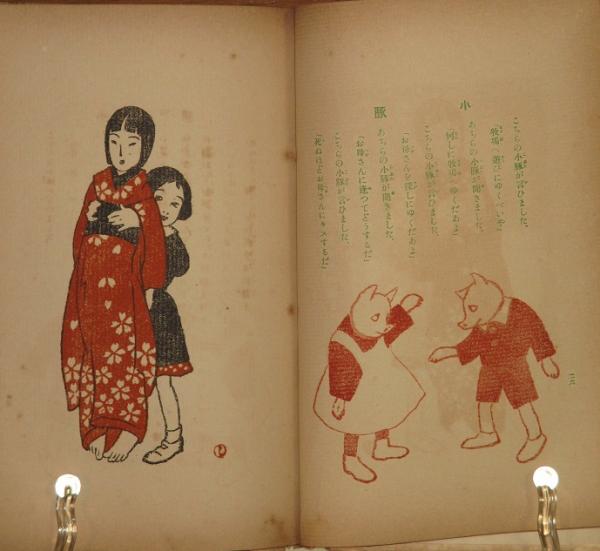 小豚
こちらの小豚が言ひました、
「牧場へ遊びにゆくべいや」
あちらの小豚が聞きました、
「何しに牧場へゆくだあよ」
こちらの小豚が言ひました、
「お母さんを探しにゆくだあよ」
あちらの小豚が聞きました、
「お母さんに逢つてどうするだ」
こちらの小豚が言ひました、
「死ぬほどお母さんにキスするだ」